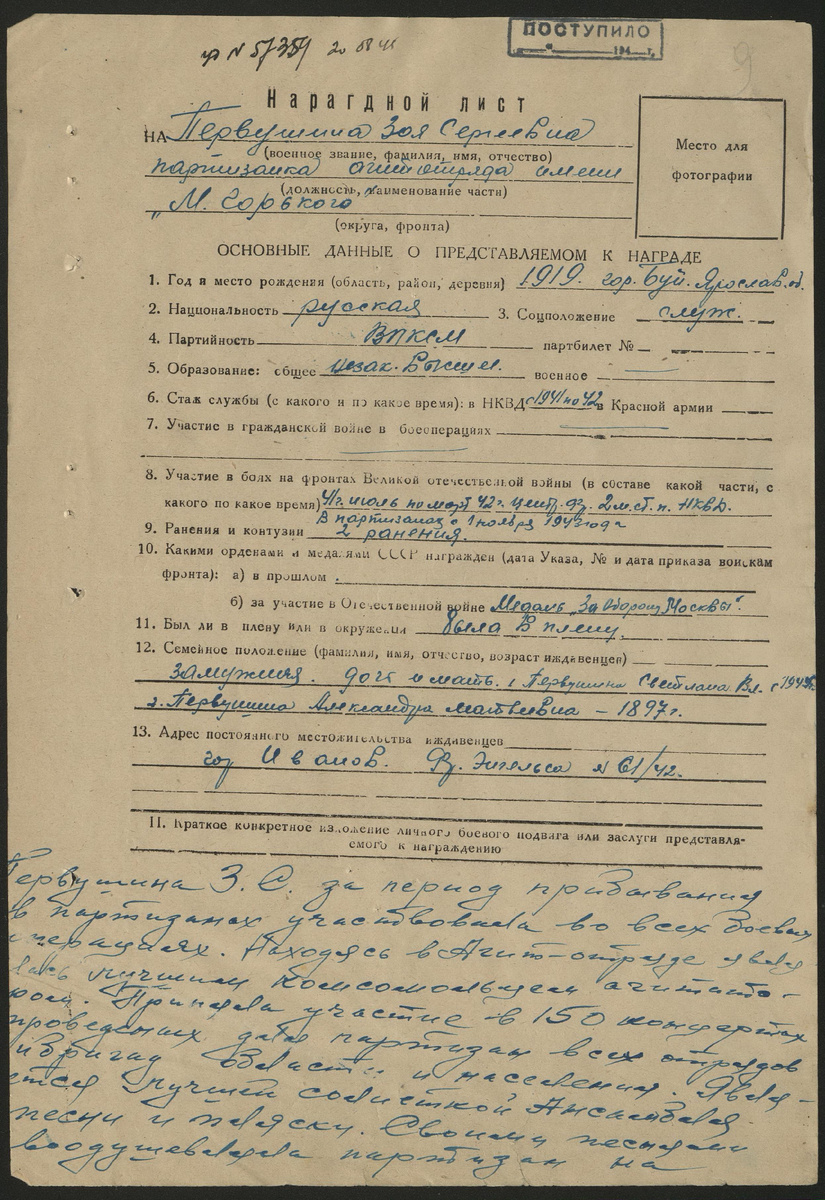 ПОСТУПИЛО
194 г.
№ 57354 20 08 44
9
Нарагдной лист
НА Первушина Зоя Сергеевна
(военное звание, фамилия, имя, отчество)
партизанка агитотряда имени
(должность, наименование части)
„М. Горького"
(округа, фронта)
Место для
фотографии
ОСНОВНЫЕ ДАННЫЕ О ПРЕДСТАВЛЯЕМОМ К НАГРАДЕ
1. Год и место рождения (область, район, деревня) 1919. гор. Буй. Ярослав. об.
2. Национальность русская 3. Соцположение служ.
4. Партийность ВЛКСМ партбилет № —
5. Образование: общее незак. Высшее. военное —
6. Стаж службы (с какого и по какое время): в НКВД с 1941 по 42 в Красной армии
7. Участие в гражданской войне в боеоперациях —
8. Участие в боях на фронтах Великой отечественной войны (в составе какой части, с
какого по какое время) 41 г. июль по март 42 г. центр. фр. 2 м.с.п. НКВД.
В партизанах с 1 ноября 1942 года
9. Ранения и контузии 2 ранения.
10. Какими орденами и медалями СССР награжден (дата Указа, № и дата приказа войскам
фронта): а) в прошлом
б) за участие в Отечественной войне Медаль „За Оборону Москвы".
11. Был ли в плену или в окружении была в плену.
12. Семейное положение (фамилия, имя, отчество, возраст иждавенцев)
замужняя. дочь и мать. 1 Первушина Светлана Вл.
2. Первушина Александра Матвеевна – 1897 г.
13. Адрес постоянного местожительства иждавенцев
гор Иванов. Фр. Энгельса № 61/42.
11. Краткое конкретное изложение личного боевого подвига или заслуги представля-
емого к награждению
Первушина З. С. за период пребывания
в партизанах участвовала во всех боевых
операциях. Находясь в Агит-отряде явля
лась лучшим комсомольцем агитато-
ром. Приняла участие в 150 концертах
проведенных для партизан всех отрядов
и бригад области и населения. Явля-
ется лучшей солисткой Ансамбля
песни и пляски. Своими песнями
воодушевляла партизан на